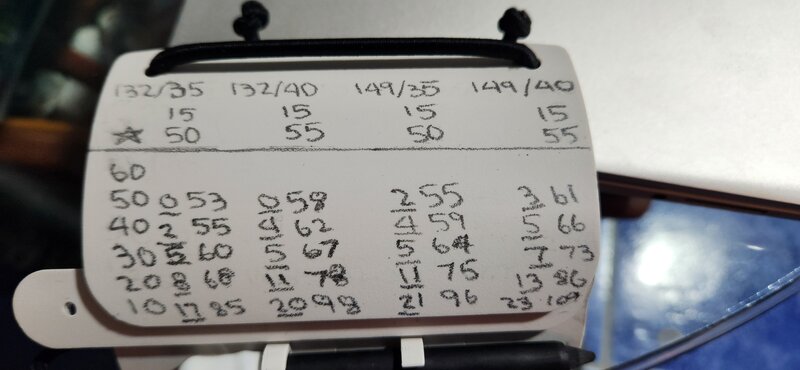 132/35 132/40 149/35 149/40
15 15 15 15
☆ 50 55 50 55
60
50 0 53 0 58 2 55 3 61
40 2 55 4 62 4 59 5 66
30 5 60 5 67 5 64 7 73
20 8 68 11 78 11 75 13 86
10 17 85 20 98 21 96 23 109